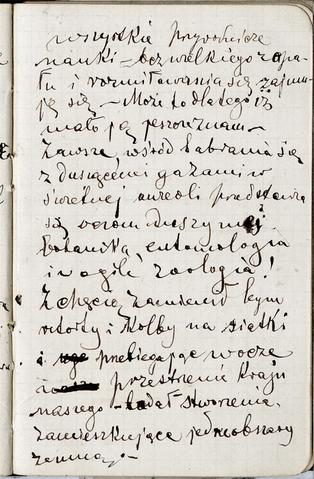 wszystkie przyrodnicze
nauki – bez wielkiego zapa-
łu i rozmiłowania się zajmu-
ję się – Może to dlatego iż
mało ją jeszcze znam –
Zawsze, wśród babrania się
z duszącemi gazami w
świetnej aureoli przedstawia
się oczom duszy mej
botanika, entomologia
i w ogóle zoologia!
Z chęcią zamieniłbym
retorty i kolby na siatki
i przebiegając wocze
przestrzenie kraju
naszego – badał stworzenia
zamieszkujące jednobszary